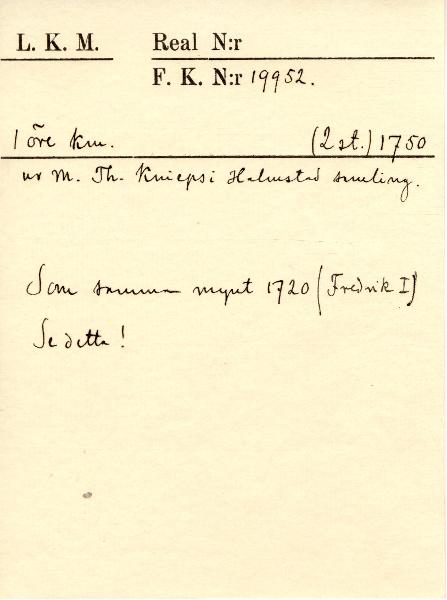 L. K. M. Real N:r
F. K. N:r 19952.
1 öre km. (2 st.) 1750
ur M. Th. Knieps i Halmstad samling.
Som samma mynt 1720 (Fredrik I)
Se detta!